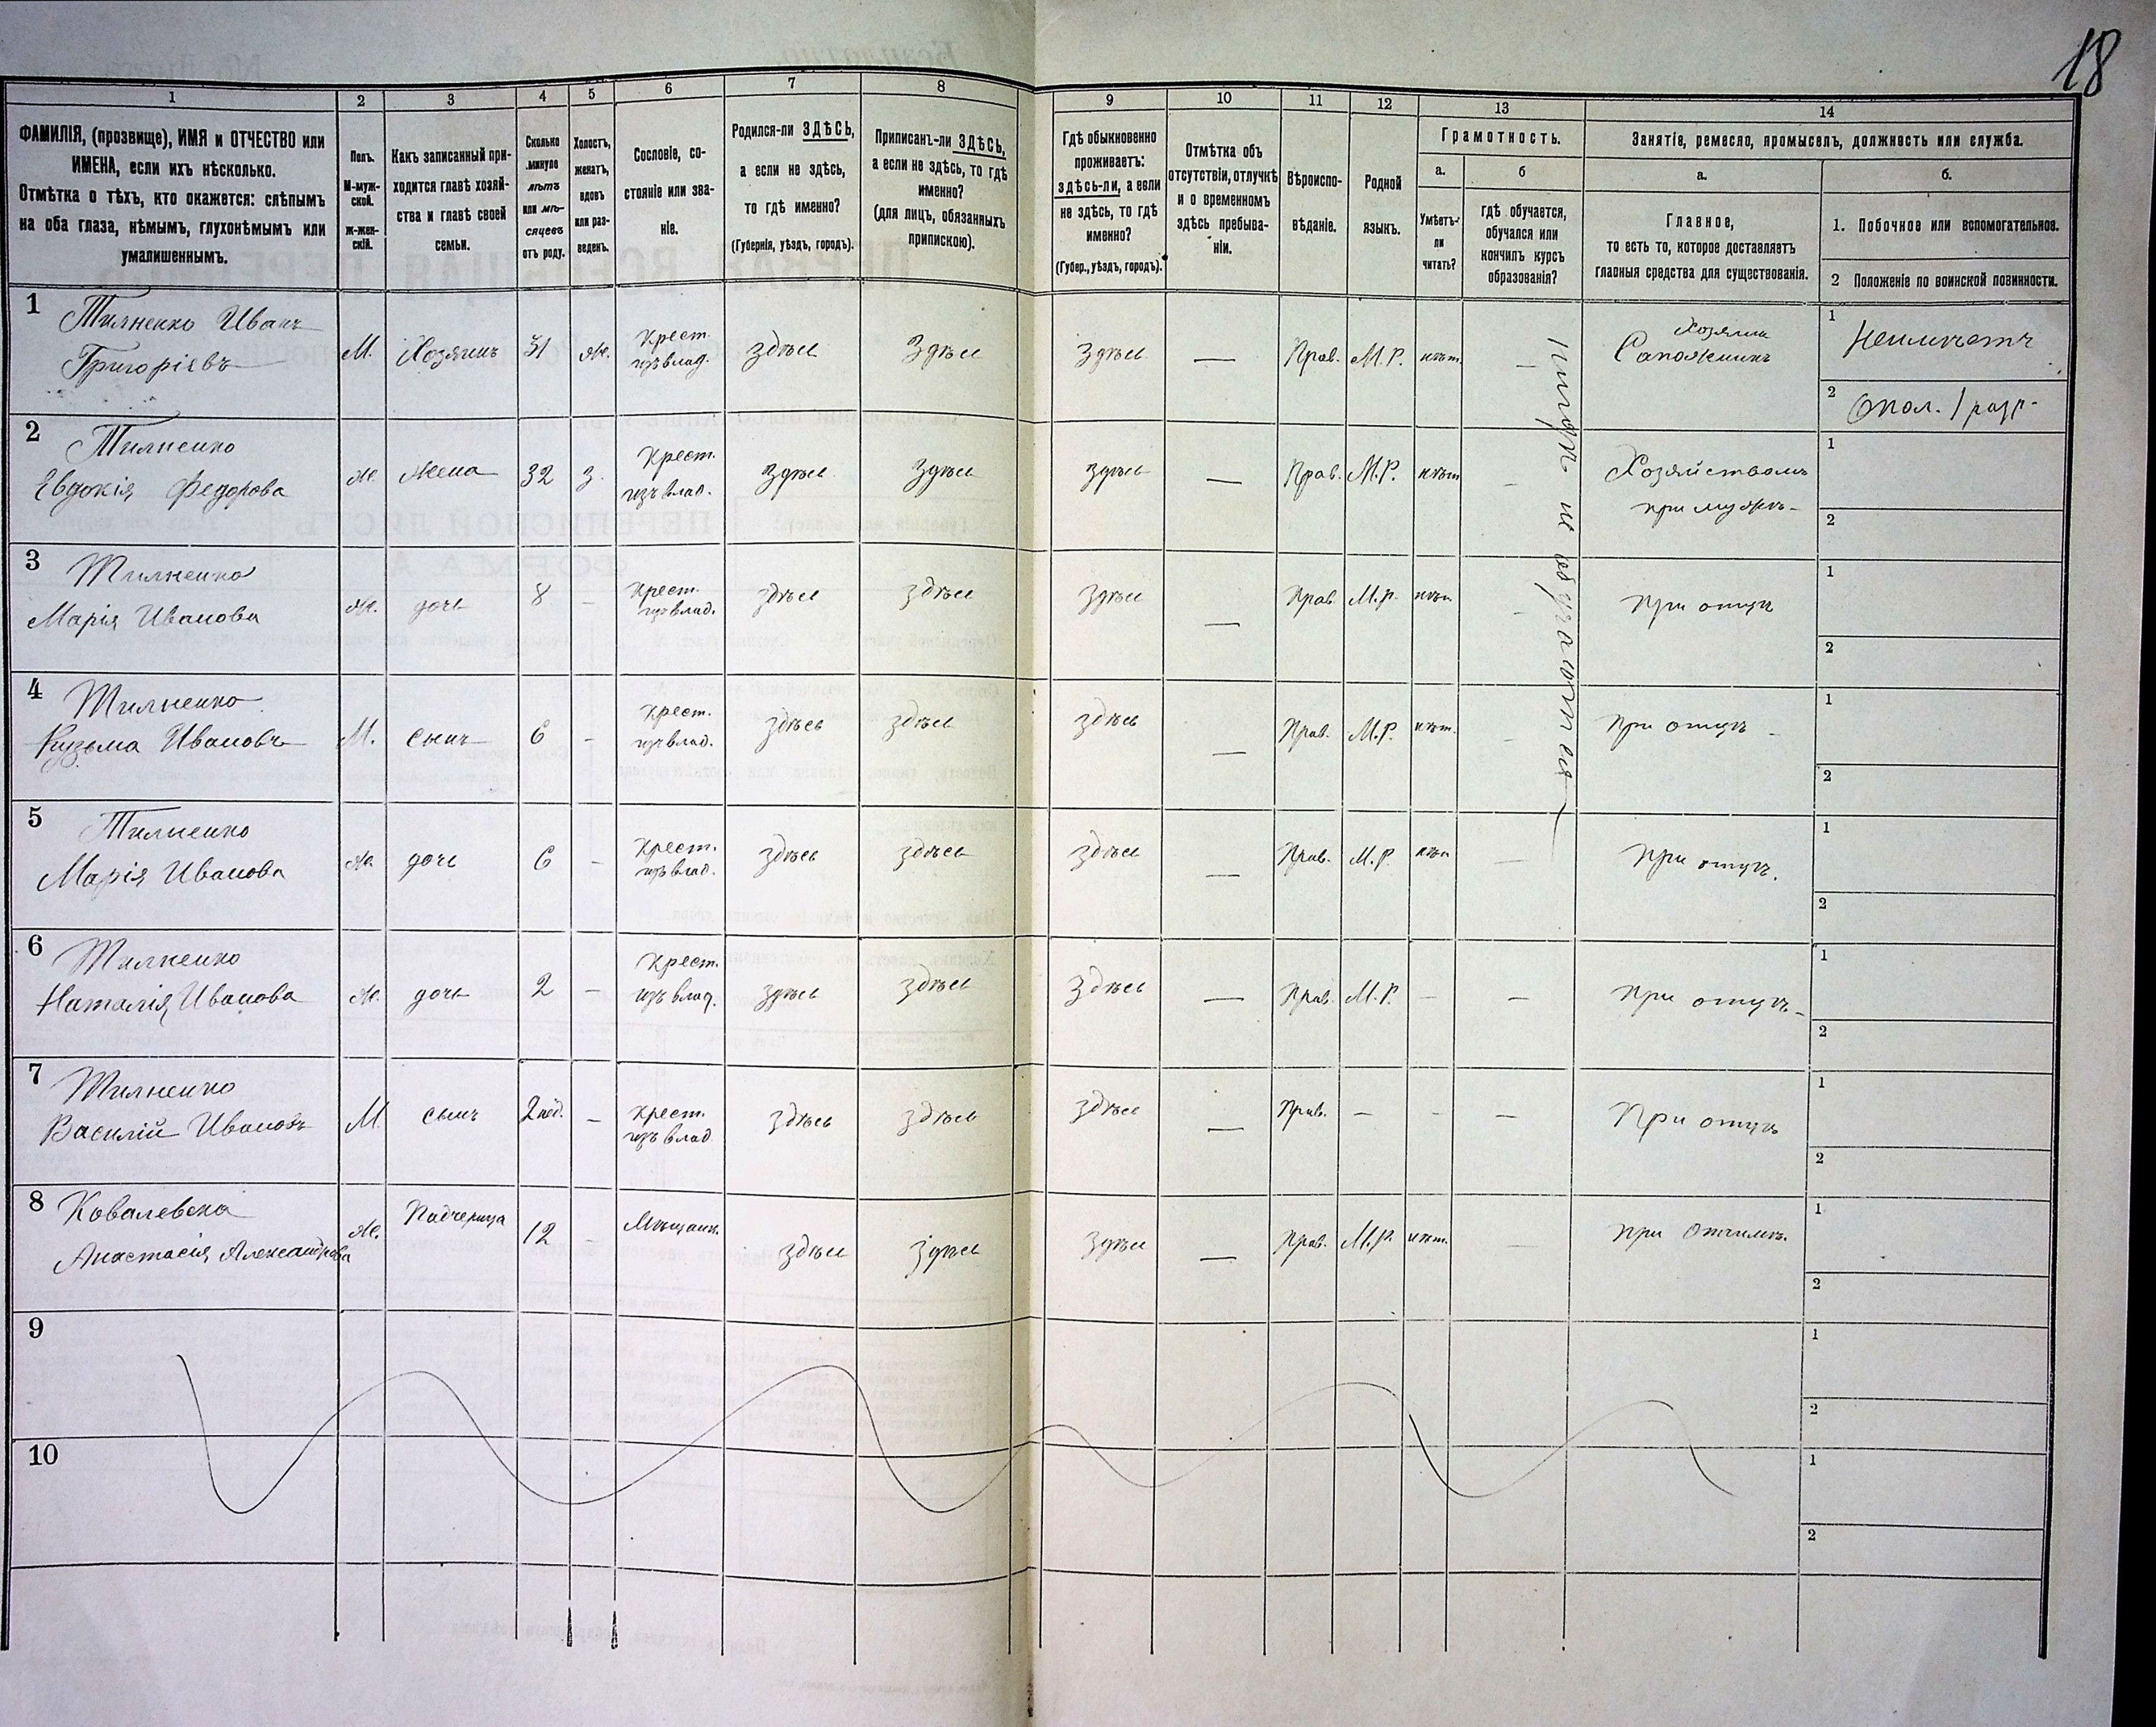 18
1 2 3 4 5 6 7 8 9 10 11 12 13 14
ФАМИЛІЯ, (прозвище), ИМЯ и ОТЧЕСТВО или
ИМЕНА, если ихъ нѣсколько.
Отмѣтка о тѣхъ, кто окажется: слѣпымъ
на оба глаза, нѣмымъ, глухонѣмымъ или
умалишеннымъ.
Полъ.
М-муж-
ской.
Ж-жен-
скій.
Какъ записанный при-
ходится главѣ хозяй-
ства и главѣ своей
семьи.
Сколько
минуло
лѣтъ
или мѣ-
сяцевъ
отъ роду.
Холостъ,
женатъ,
вдовъ
или раз-
веденъ.
Сословіе, со-
стояніе или зва-
ніе.
Родился-ли ЗДѢСЬ,
а если не здѣсь,
то гдѣ именно?
(Губернія, уѣздъ, городъ).
Приписанъ-ли ЗДѢСЬ,
а если не здѣсь, то гдѣ
именно?
(для лицъ, обязанныхъ
припискою).
Гдѣ обыкновенно
проживаетъ:
здѣсь-ли, а если
не здѣсь, то гдѣ
именно?
(Губер., уѣздъ, городъ).
Отмѣтка объ
отсутствіи, отлучкѣ
и о временномъ
здѣсь пребыва-
ніи.
Вѣроиспо-
вѣданіе.
Родной
языкъ.
Грамотность.
а. б
Умѣетъ-
ли
читать?
гдѣ обучается,
обучался или
кончилъ курсъ
образованія?
Занятіе, ремесло, промыселъ, должность или служба.
а. б.
Главное,
то есть то, которое доставляетъ
главныя средства для существованія.
1. Побочное или вспомогательное.
2 Положеніе по воинской повинности.
1 Тилненко Иванъ
Григоріевъ
М. Хозяинъ 31 ж. Крест. изъ влад. здѣсь Здѣсь Здѣсь — Прав. М.Р. нѣт. – Хозяинъ Сапожникъ
1 Неимѣетъ
2 Опол. I разр.
2 Тилненко
Евдокія Федорова
Ж. Жена 32 З. Крест. изъ влад. Здѣсь Здѣсь здѣсь — Прав. М.Р. нѣт – Хозяйствомъ при мужѣ
1
2
3 Тилненко
Марія Иванова
Ж. дочь 8 – Крест. изъ влад. здѣсь здѣсь Здѣсь — Прав. М.Р. нѣт – При отцѣ
1
2
4 Тилненко
Кузьма Ивановъ
М. сынъ 6 – Крест. изъ влад. здѣсь здѣсь здѣсь — Прав. М.Р. нѣт. – При отцѣ
1
2
5 Тилненко
Марія Иванова
Ж. дочь 6 – Крест. изъ влад. здѣсь здѣсь здѣсь — Прав. М.Р. нѣт — При отцѣ.
1
2
6 Тилненко
Наталія Иванова
Ж. дочь 2 – Крест. изъ влад. здѣсь здѣсь Здѣсь — Прав. М.Р. – – При отцѣ
1
2
7 Тилненко
Василій Ивановъ
М. сынъ 2 нед. – Крест. изъ влад здѣсь здѣсь здѣсь — Прав. – – – При отцѣ
1
2
8 Ковалевска
Анастасія Александрова
Ж. Падчерица 12 – Мѣщанк. здѣсь здѣсь Здѣсь — Прав. М.Р. нѣт. — При Отчимѣ.
1
2
9
1
2
10
1
2